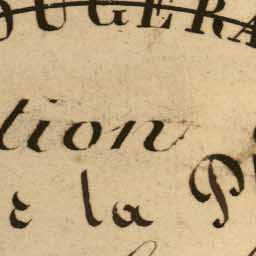 OUGERA
tion
e la P